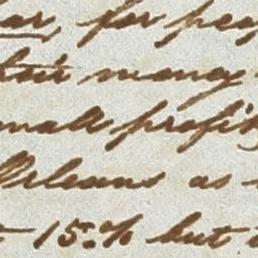 for
their money
small profit
Orleans as
15.% but